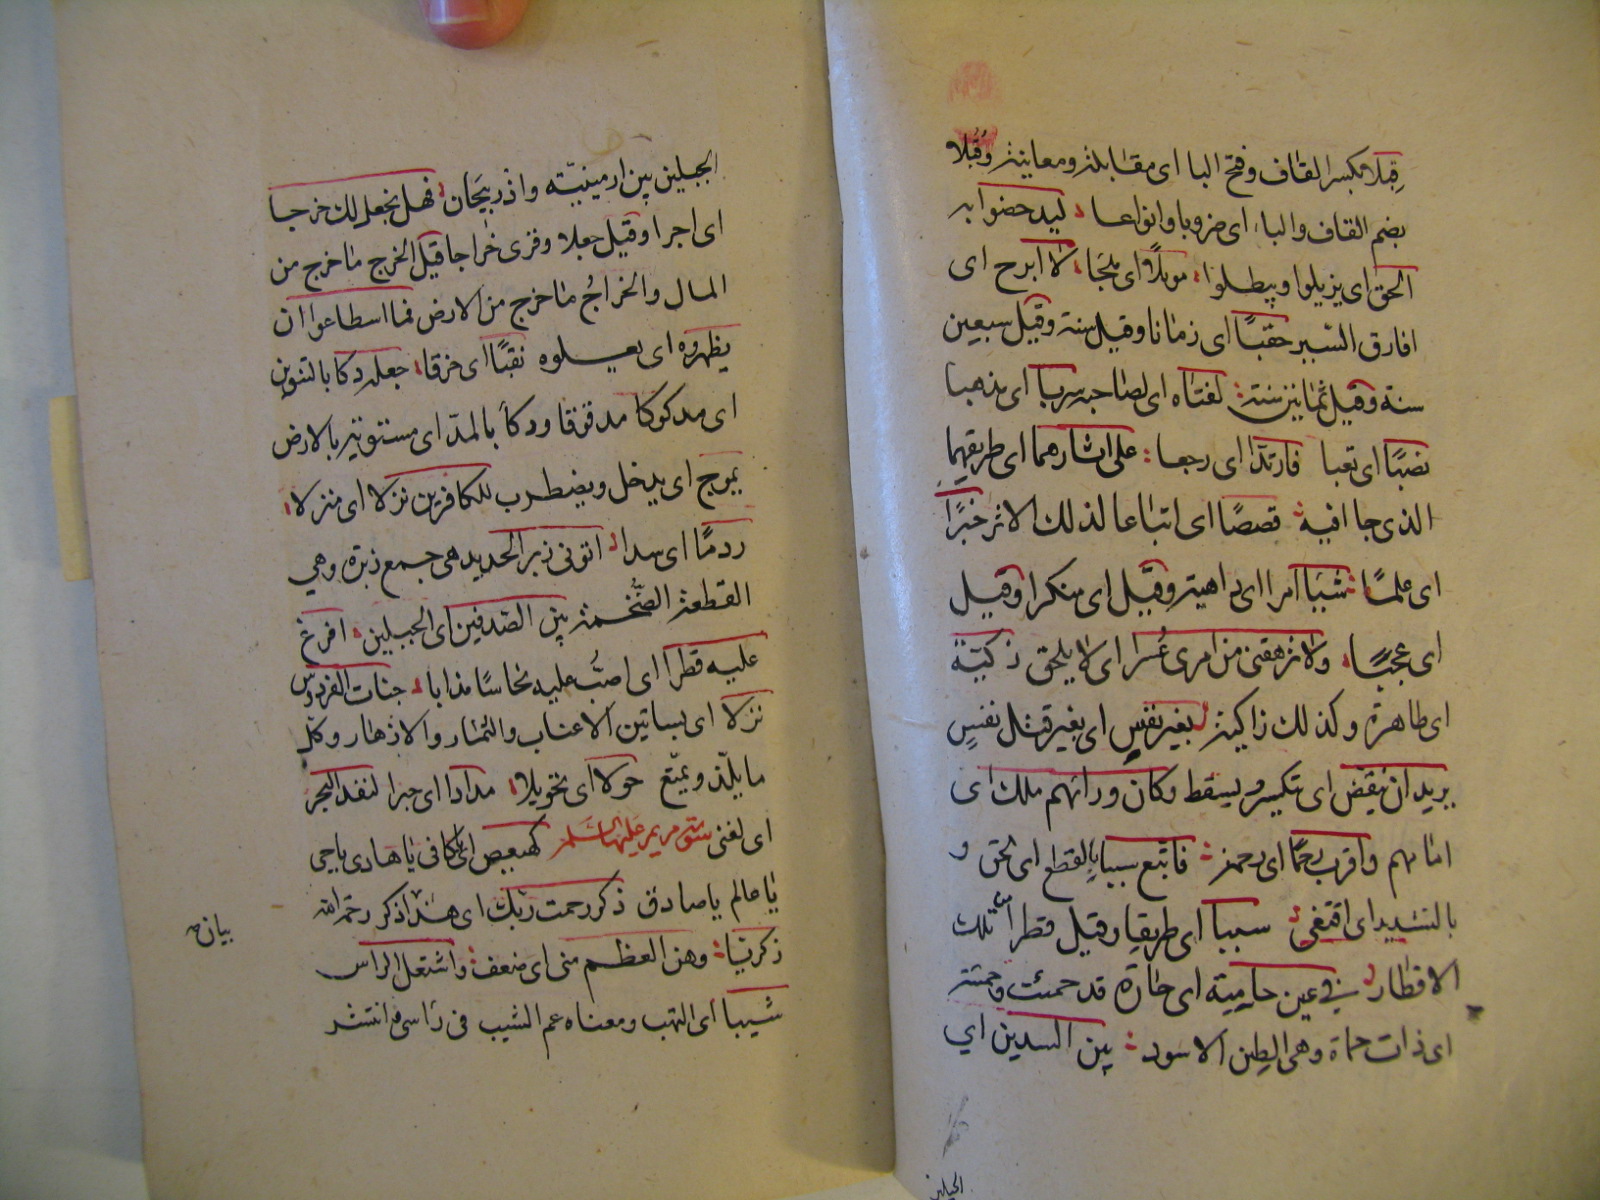 قِبَلا بكسر القاف وفتح البا اى مقابلة ومعاينة وقُبُلا
بضم القاف والبا، اى ضروبا وانواعا ليدحضوا به
الحق اى يزيلوا ويبطلوا موئلًا اى ملجَا لا ابرح اى
افارق السير حقبًا اى زمانا وقيل سنة وقيل سبعين
سنة وقيل ثمانين سنة لفتاه اى لصاحبه سربا اى مذهبا
نصبًا اى تعبا فارتدّا اى رجعا على اثارهما اى طريقهما
الذى جاا فيه قصصًا اى اتباعا لذلك الاثر خبرًا
اى علمًا شيًا امرا اى داهية وقيل اى منكرا وقيل
اى عجبًا ولا ترهقنى من امرى عُسرا اى لا يلحق زكيّة
اى طاهرة وكذلك زاكية بغير نفسٍ اى بغير قتل نفسٍ
يريد ان ينقض اى تكسر ويسقط وكان ورائهم ملك اى
امامهم واقرب رحمًا اى رحمة فاتبع سببا بالقطع اى لحق و
بالتشديد اى اقتفى سببا اى طريقا وقيل قطرا من تلك
الاقطار فى عين حامية اى حارة قد حمئت وحمئة
اى ذات حماة وهى الطين الاسود بين السدين اي
الجبلين
الجبلين بين ارمينيّه واذربيجَان فهل نجعل لك خرجا
اى اجرا وقيل جعلا وقرى خراجا قيل الخرج ما خرج من
المال والخراجُ ما خرج من الارض فما اسطاعوا ان
يظهروه اى يعلوه نقبًا اى خرقا جعله دكا بالتنوين
اى مدكوكا مدقوقا ودكأ بالمدّ اى مستوية بالارض
يموج اى يدخل ويضطرب للكافرين نزلا اى منزلا
ردمًا اى سدا اتونى زبر الحديد هى جمع زبرة وهي
القطعة الضّخمة بين الصّدفين اى الجبلين افرغ
عليه قطرا اى اصبُّ عليه نحاسًا مذابا جنات الفردوس
نزلا اى بساتين الاعناب والثمار والازهار وكل
ما يلّذ ويمتّع حولا اى تحويلا مدادا اى حبرا لنفد البحر
اى لفنى سورة مريم عليها السلم كهيعص اى يا كافى يا هادى يا حى
يا عالم يا صادق ذكر رحمت ربّك اى هذا ذكر رحمة الله
زكريّا وهن العظم منى اى ضعف واشتعل الراس
شيبا اى التهب ومعناه عم الشيب فى راسى وانتشر
بيان